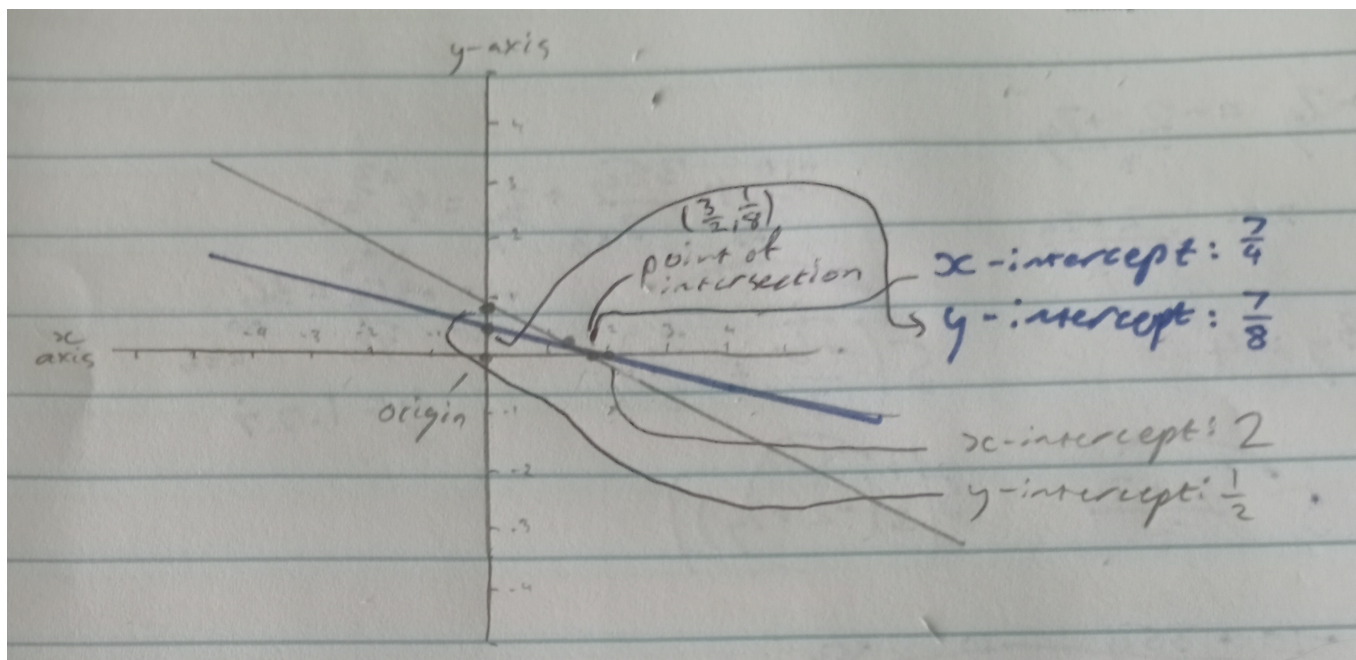 y-axis
4
3
2
1
(3/2, 1/8)
point of
intersection
x-intercept: 7/4
y-intercept: 7/8
-4 -3 -2 -1 1 2 3 4
x
axis
origin
-1
x-intercept: 2
-2
y-intercept: 1/2
-3
-4